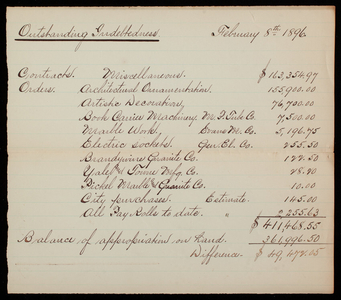 Outstanding Indebtedness. February 8th 1896.
Contracts. Miscellaneous. $163,354.97
Orders. Architectural Ornamentation. 155,900.00
Artistic Decoration, 76,700.00
Book Carries Machinery M. T. Co. 7,500.00
Marble Work, Evans M. Co. 5,196.75
Electric sockets. Gen. El. Co. 255.50
Brandywine Granite Co. 122.50
Yale & Towne Mfg. Co. 28.20
Nickel Marble & Granite Co. 10.00
City purchases. Estimate. 145.00
All Pay Rolls to date. " 2,255.63
$411,468.55
Balance of appropriation on hand. 361,996.50
Difference. $49,472.05